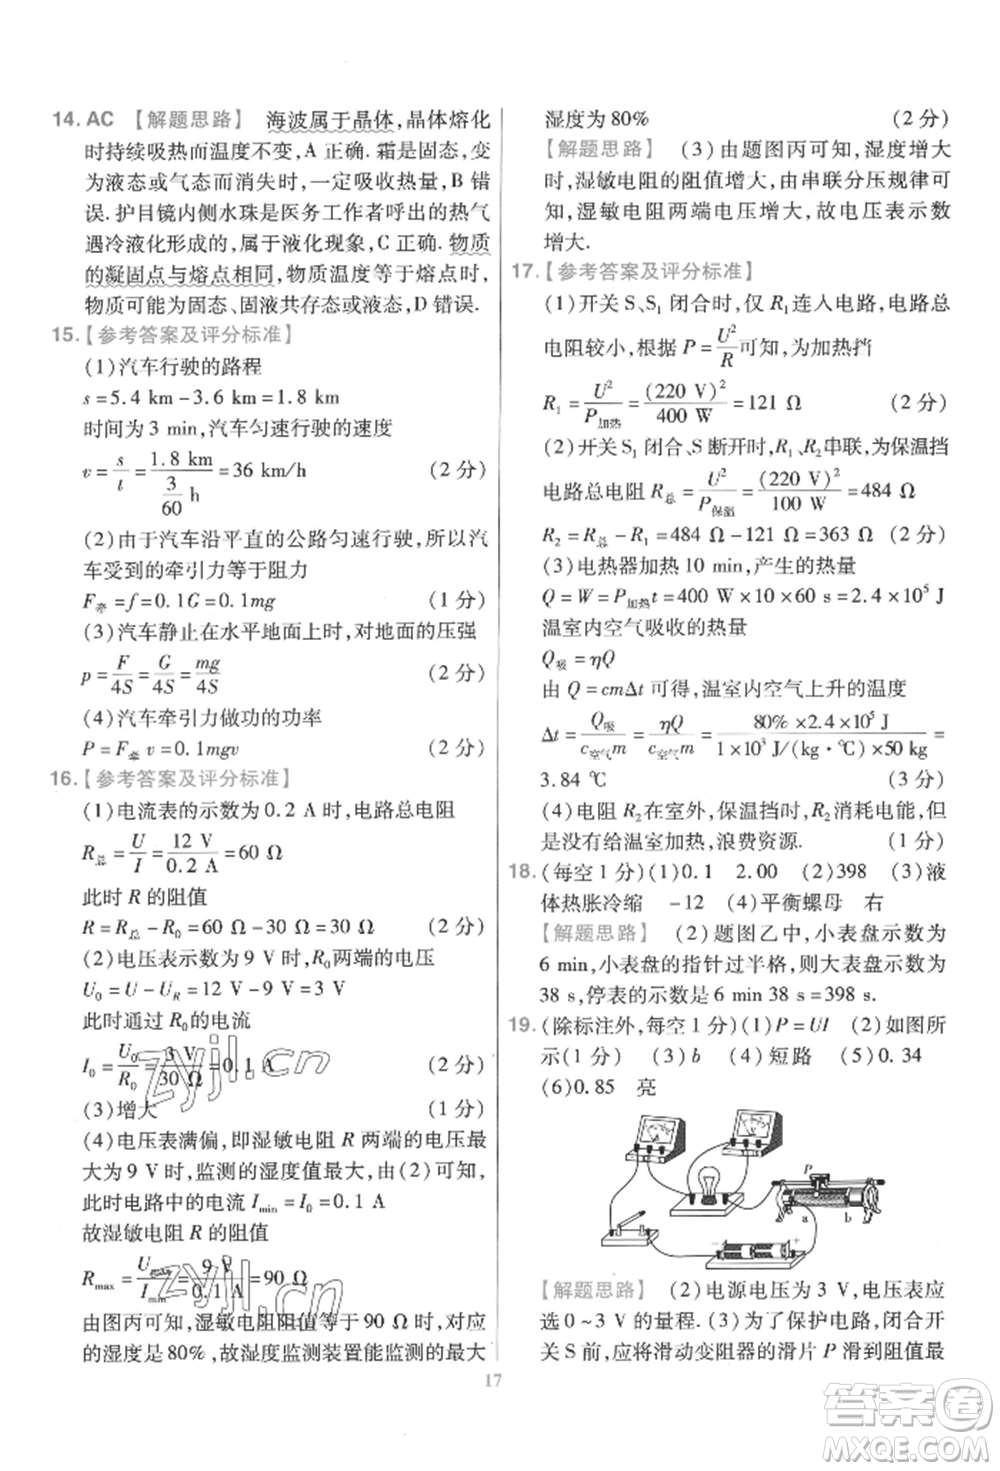 14. AC 【解题思路】 海波属于晶体,晶体熔化
时持续吸热而温度不变,A 正确. 霜是固态,变
为液态或气态而消失时,一定吸收热量,B 错
误. 护目镜内侧水珠是医务工作者呼出的热气
遇冷液化形成的,属于液化现象,C 正确. 物质
的凝固点与熔点相同,物质温度等于熔点时,
物质可能为固态、固液共存态或液态,D 错误.
15.【参考答案及评分标准】
(1)汽车行驶的路程
s = 5.4 km - 3.6 km = 1.8 km
时间为 3 min,汽车匀速行驶的速度
v = s/t = 1.8 km / (3/60 h) = 36 km/h (2 分)
(2)由于汽车沿平直的公路匀速行驶,所以汽
车受到的牵引力等于阻力
F牵 = f = 0.1G = 0.1mg (1 分)
(3)汽车静止在水平地面上时,对地面的压强
p = F/4S = G/4S = mg/4S (2 分)
(4)汽车牵引力做功的功率
P = F牵 v = 0.1mgv (2 分)
16.【参考答案及评分标准】
(1)电流表的示数为 0.2 A 时,电路总电阻
R总 = U/I = 12 V/0.2 A = 60 Ω
此时 R 的阻值
R = R总 - R0 = 60 Ω - 30 Ω = 30 Ω (2 分)
(2)电压表示数为 9 V 时,R0两端的电压
U0 = U - UR = 12 V - 9 V = 3 V
此时通过 R0 的电流
I0 = U0/R0 = 3 V/30 Ω = 0.1 A (2 分)
(3)增大 (1 分)
(4)电压表满偏,即湿敏电阻 R 两端的电压最
大为 9 V 时,监测的湿度值最大,由(2)可知,
此时电路中的电流 Imin = I0 = 0.1 A
故湿敏电阻 R 的阻值
Rmax = Umax/Imin = 9 V/0.1 A = 90 Ω
由图丙可知,湿敏电阻阻值等于 90 Ω 时,对应
的湿度是 80%,故湿度监测装置能监测的最大
湿度为 80% (2 分)
【解题思路】 (3)由题图丙可知,湿度增大
时,湿敏电阻的阻值增大,由串联分压规律可
知,湿敏电阻两端电压增大,故电压表示数
增大.
17.【参考答案及评分标准】
(1)开关 S、S1 闭合时,仅 R1 连入电路,电路总
电阻较小,根据 P = U²/R 可知,为加热挡
R1 = U²/P加热 = (220 V)²/400 W = 121 Ω (2 分)
(2)开关 S1 闭合、S 断开时,R1、R2串联,为保温挡
电路总电阻 R总 = U²/P保温 = (220 V)²/100 W = 484 Ω
R2 = R总 - R1 = 484 Ω - 121 Ω = 363 Ω (2 分)
(3)电热器加热 10 min,产生的热量
Q = W = P加热 t = 400 W × 10 × 60 s = 2.4 × 10⁵ J
温室内空气吸收的热量
Q吸 = ηQ
由 Q = cmΔt 可得,温室内空气上升的温度
Δt = Q吸/c空气m = ηQ/c空气m = 80% × 2.4 × 10⁵ J / 1 × 10³ J/(kg·℃) × 50 kg =
3.84 ℃ (3 分)
(4)电阻 R2 在室外,保温挡时,R2 消耗电能,但
是没有给温室加热,浪费资源. (1 分)
18. (每空 1 分)(1)0.1 2.00 (2)398 (3)液
体热胀冷缩 -12 (4)平衡螺母 右
【解题思路】 (2)题图乙中,小表盘示数为
6 min,小表盘的指针过半格,则大表盘示数为
38 s,停表的示数是 6 min 38 s = 398 s.
19. (除标注外,每空 1 分)(1)P = UI (2)如图所
示(1 分) (3)b (4)短路 (5)0.34
(6)0.85 亮
P
a b
【解题思路】 (2)电源电压为 3 V,电压表应
选 0~3 V 的量程. (3)为了保护电路,闭合开
关 S 前,应将滑动变阻器的滑片 P 滑到阻值最
17
zyjl.cn
zyjl.cn
答案圈
MXQE.COM